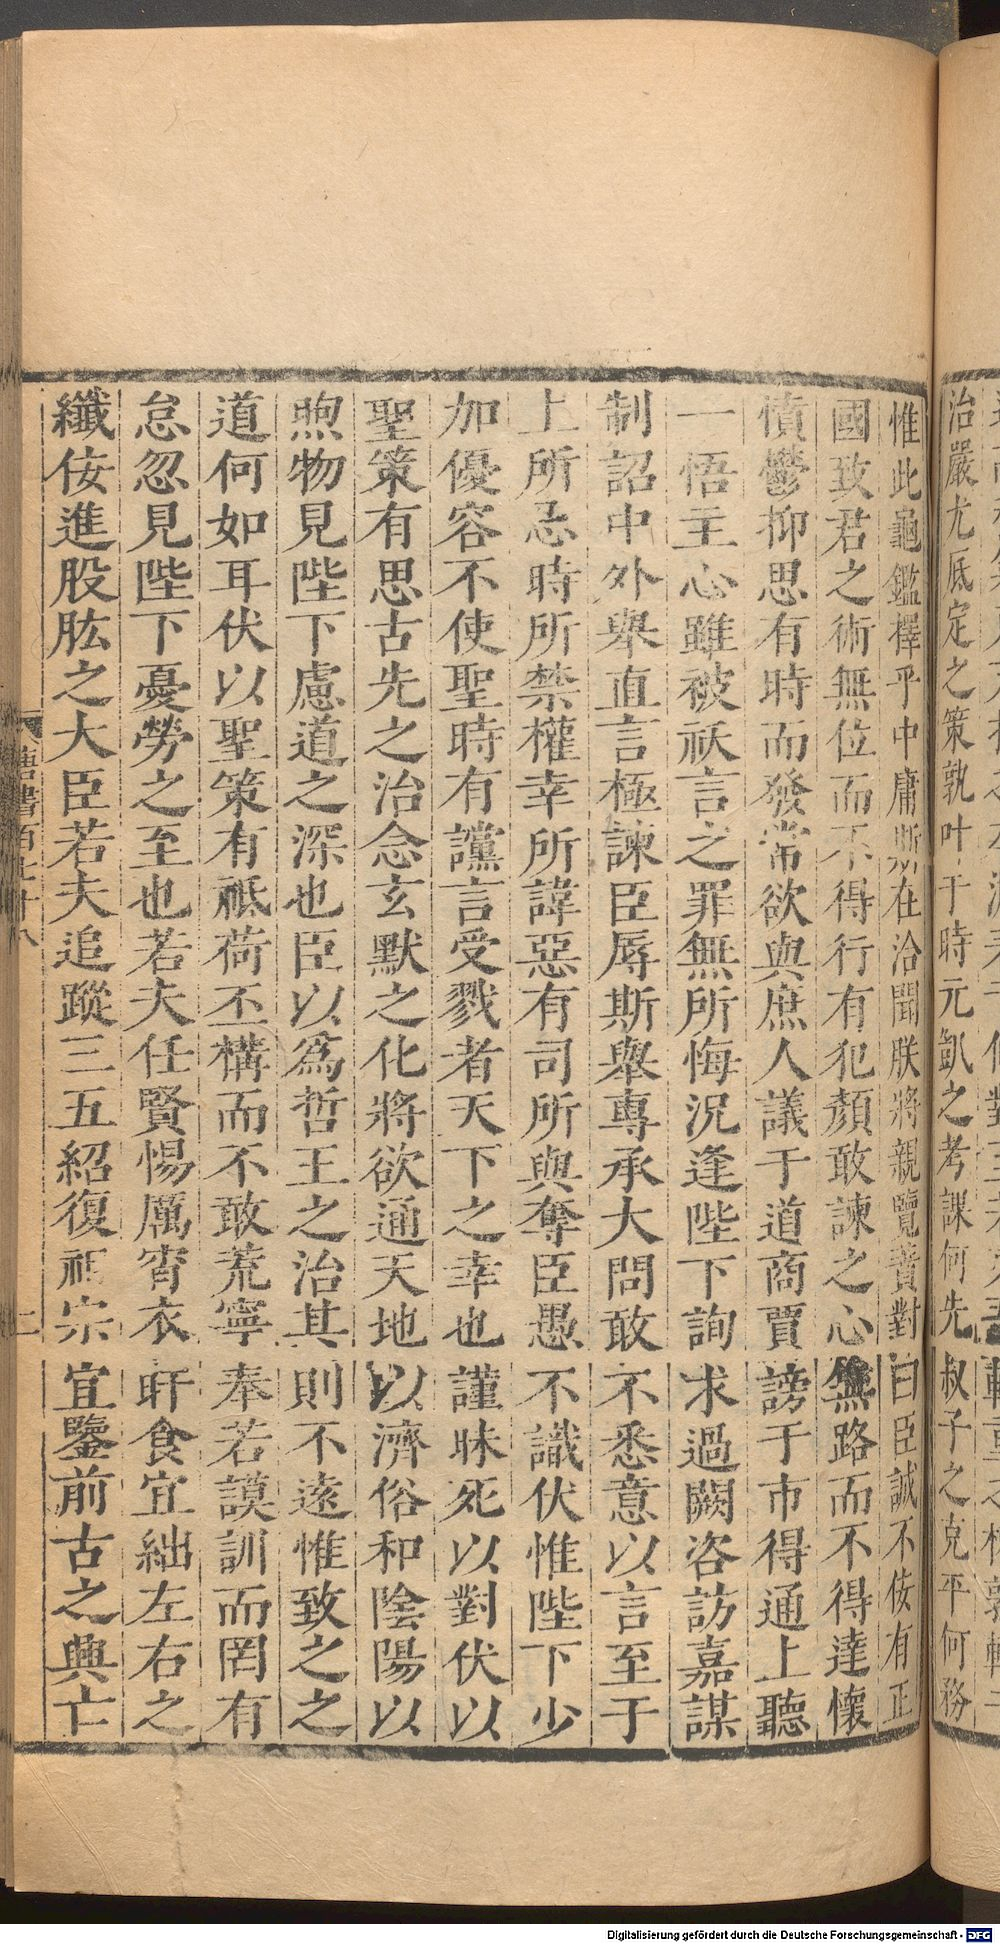 治嚴尤底定之策孰叶于時元凱之考課何先叔子之克平何務
惟此龜鑑擇乎中庸斯在洽聞朕將親覽蕡對曰臣誠不佞有正
國致君之術無位而不得行有犯顏敢諫之心無路而不得達懷
憤鬱抑思有時而發常欲與庶人議于道商賈謗于市得通上聽
一悟主心雖被祅言之罪無所悔況逢陛下詢求過闕咨訪嘉謀
制詔中外舉直言極諫臣辱斯舉專承大問敢不悉意以言至于
上所忌時所禁權幸所諱惡有司所與奪臣愚不識伏惟陛下少
加優容不使聖時有讜言受戮者天下之幸也謹昧死以對伏以
聖策有思古先之治念玄默之化將欲通天地以濟俗和陰陽以
煦物見陛下慮道之深也臣以爲哲王之治其則不遠惟致之之
道何如耳伏以聖策有祗荷丕構而不敢荒寧奉若謨訓而罔有
怠忽見陛下憂勞之至也若夫任賢惕厲宵衣旰食宜絀左右之
纖佞進股肱之大臣若夫追蹤三五紹復祖宗宜鑒前古之興亡
唐書百七十八
二
Digitalisierung gefördert durch die Deutsche Forschungsgemeinschaft - DFG